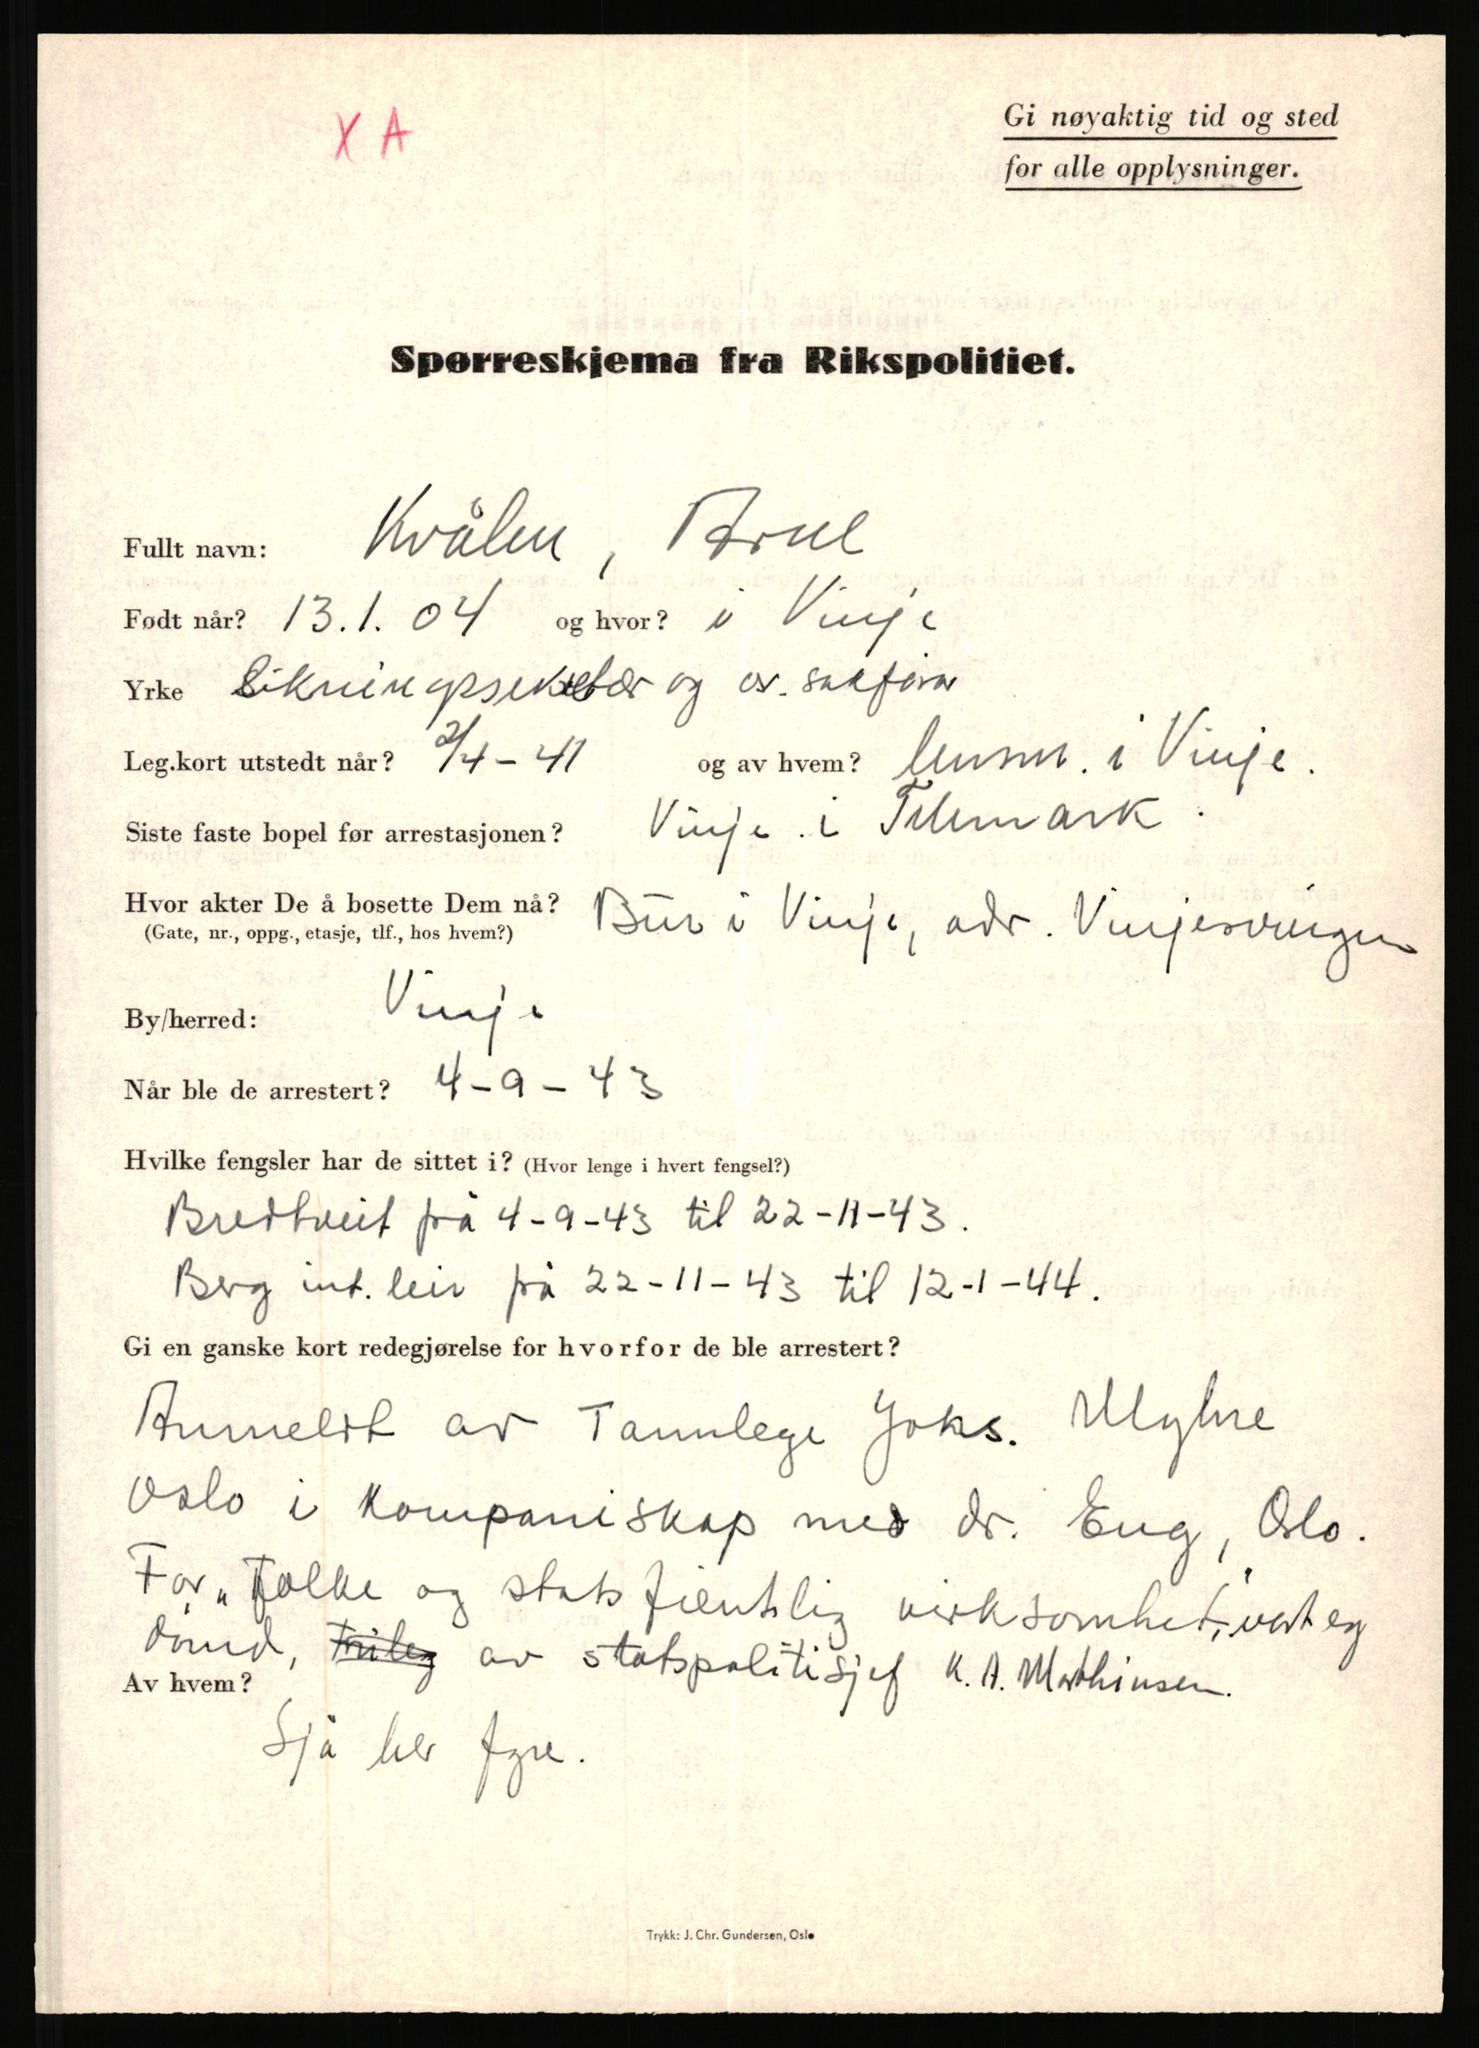 X A
Gi nøyaktig tid og sted
for alle opplysninger.
Spørreskjema fra Rikspolitiet.
Fullt navn: Kvålen, Arne
Født når? 13.1.04 og hvor? i Vinje
Yrke Likningssekretær og o.r. sakførar
Leg.kort utstedt når? 2/4-41 og av hvem? lensm. i Vinje.
Siste faste bopel før arrestasjonen? Vinje i Telemark.
Hvor akter De å bosette Dem nå? Bur i Vinje, adr. Vinjesvingen
(Gate, nr., oppg., etasje, tlf., hos hvem?)
By/herred: Vinje
Når ble de arrestert? 4-9-43
Hvilke fengsler har de sittet i? (Hvor lenge i hvert fengsel?)
Bredtveit frå 4-9-43 til 22-11-43.
Berg int. leir frå 22-11-43 til 12-1-44.
Gi en ganske kort redegjørelse for hvorfor de ble arrestert?
Anmeldt av Tannlege Johs. Myhre
Oslo i kompaniskap med dr. Eng, Oslo.
For „Folke og statsfientlig virksomhet", vart eg
dømd, av statspolitisjef K. A. Marthinsen.
Av hvem?
Sjå her fyre.
Trykk: J. Chr. Gundersen, Oslo